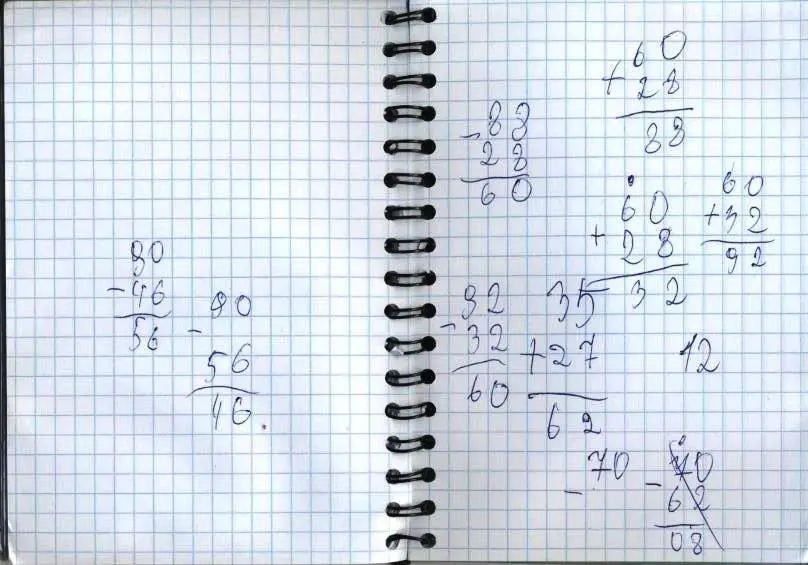 90
- 46
56
- 90
56
46.
60
+ 28
88
- 88
28
60
60
+ 28
32
60
+ 32
92
92
- 32
60
35
+ 27
62
12
- 70
- 70
62
08